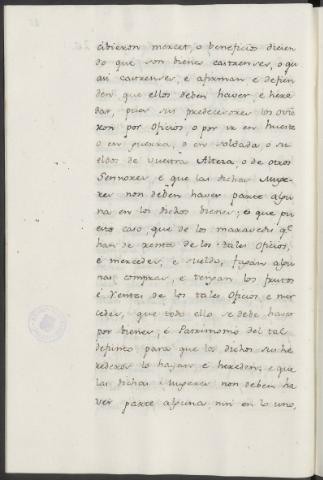 cibieron mercet, o beneficio dicien
do que son bienes castrenses, o qu
asi castrenses, e afirman e defien
den que ellos deben haver, e here
dar, pues sus predecesores los ovie
ron por Oficios o por ir en hueste
o en guerra, o en soldada o su
eldos de Vuestra Alteza, o de otros
Sennores e que las dichas Muge
res non deben haver parte algu
na en los dichos bienes; é que pu
esto caso, que de los maravedis qe
han de renta de los tales Oficios,
e mercedes, e sueldo, fagan algu
nas compras, e tengan los frutos
é renta de los tales Oficios, e mer
cedes, que todo ello se debe haver
por bienes, é Patrimonio del tal
defunto para que los dichos sus he
rederos lo hayan e hereden, e que
las dichas Mugeres non deben ha
ver parte alguna nin en lo uno,